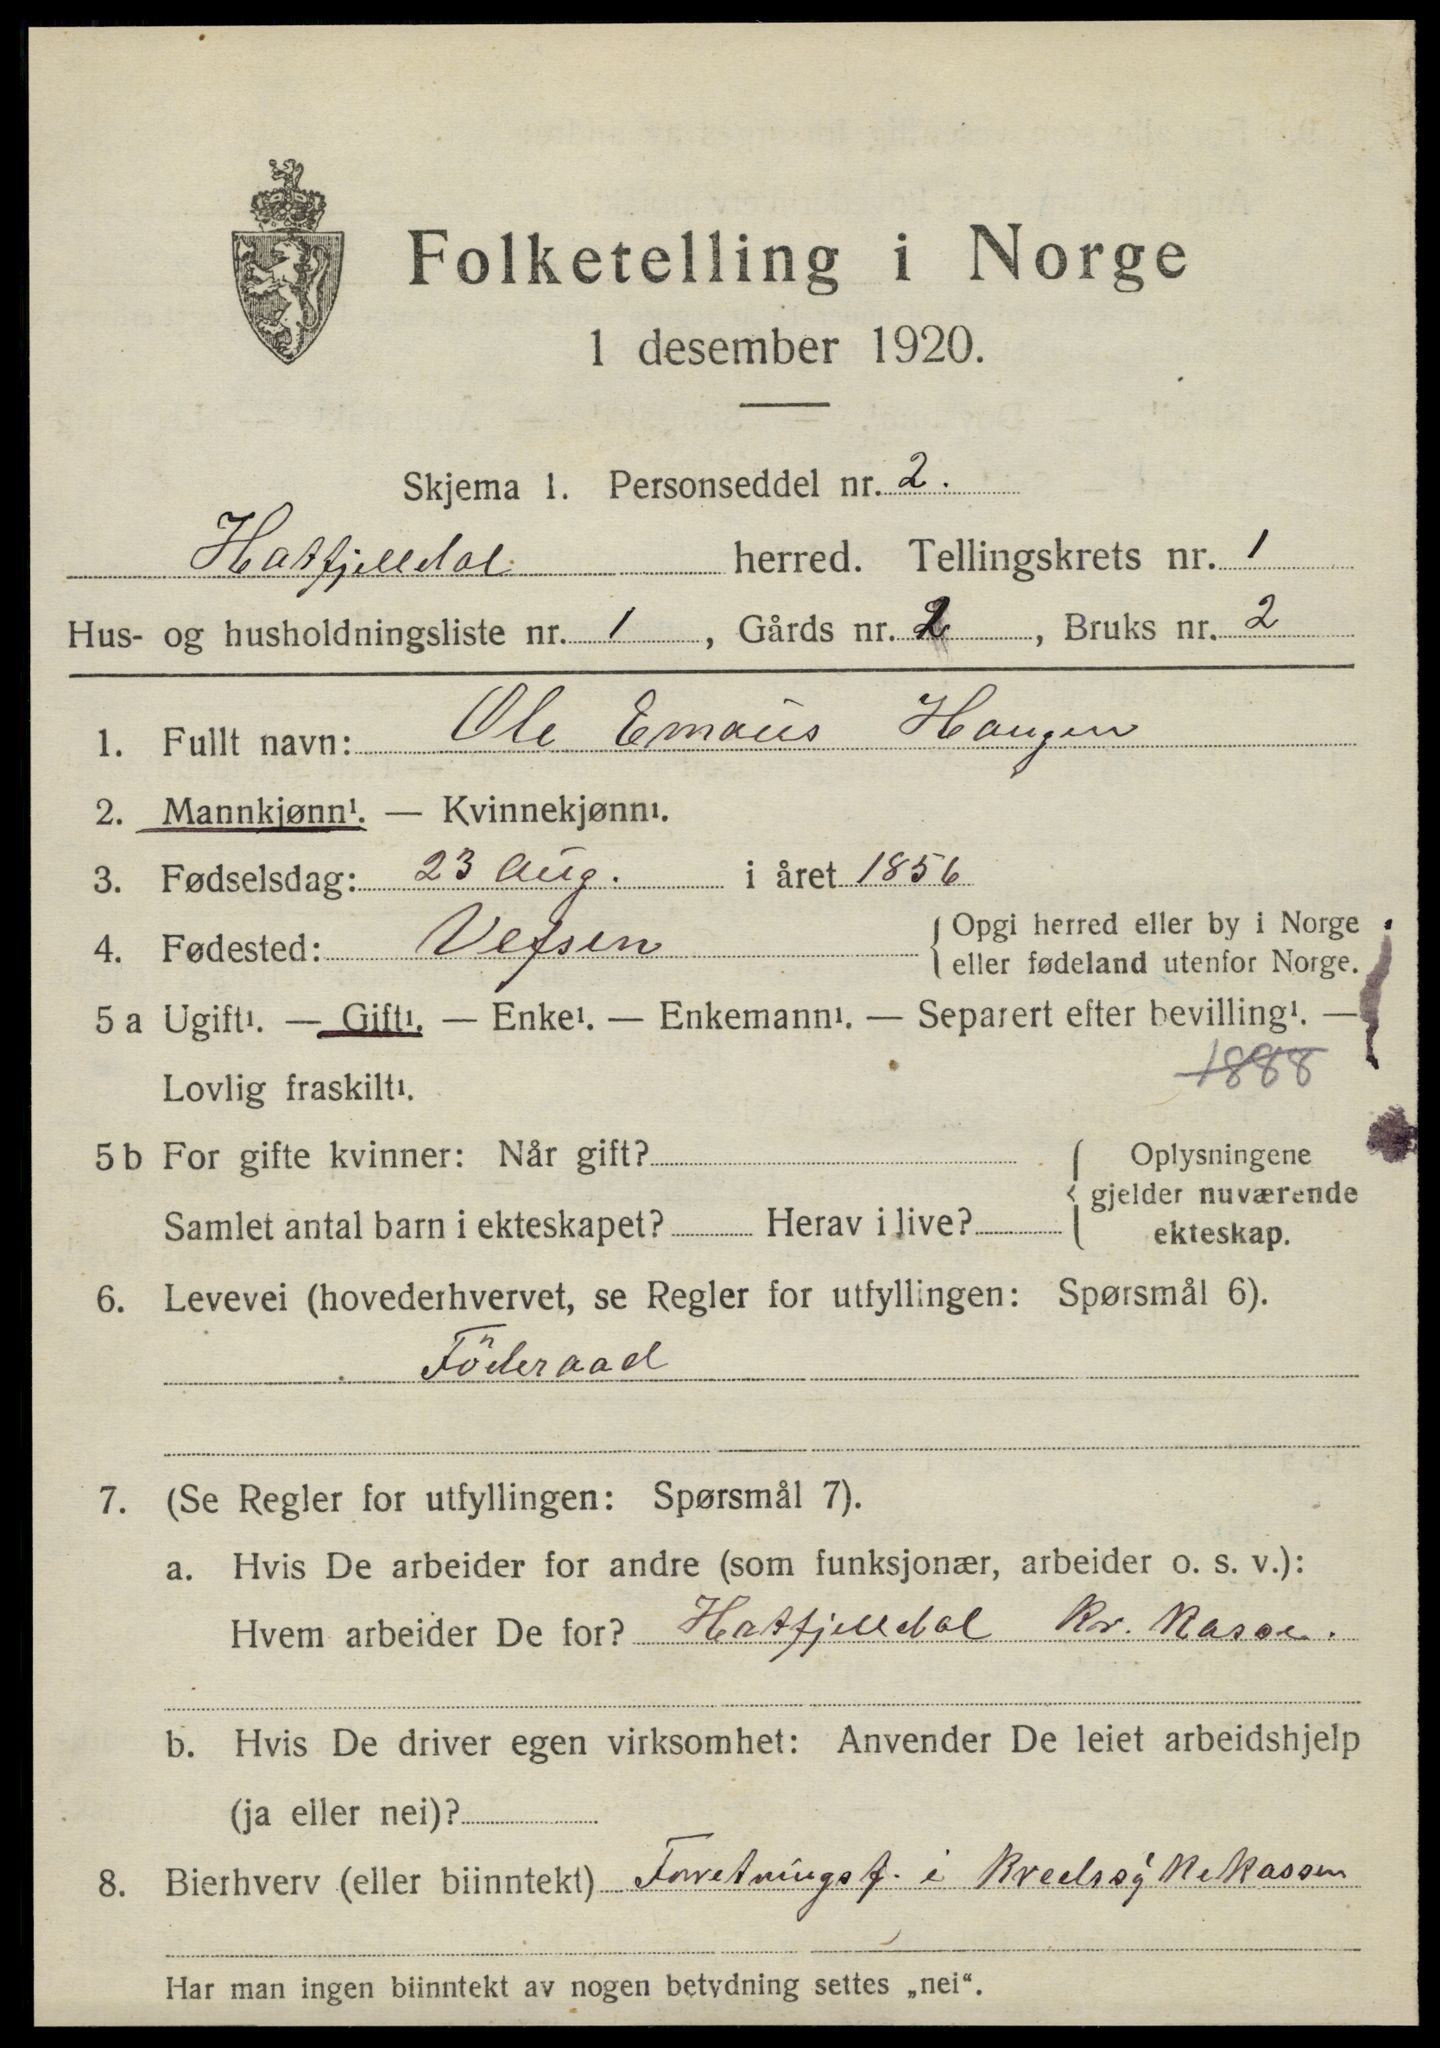 Folketelling i Norge
1 desember 1920.
Skjema 1. Personseddel nr. 2.
Hatfjelldal herred. Tellingskrets nr. 1
Hus- og husholdningsliste nr. 1, Gårds nr. 2, Bruks nr. 2
1. Fullt navn: Ole Emaus Haugen
2. Mannkjønn¹. — Kvinnekjønn¹.
3. Fødselsdag: 23 Aug. i året 1856
4. Fødested: Vefsen { Opgi herred eller by i Norge
eller fødeland utenfor Norge.
5 a Ugift¹. — Gift¹. — Enke¹. — Enkemann¹. — Separert efter bevilling¹. —
Lovlig fraskilt¹. 1888
5 b For gifte kvinner: Når gift? { Oplysningene
gjelder nuværende
Samlet antal barn i ekteskapet? Herav i live? ekteskap.
6. Levevei (hovederhvervet, se Regler for utfyllingen: Spørsmål 6).
Föderaad
7. (Se Regler for utfyllingen: Spørsmål 7).
a. Hvis De arbeider for andre (som funksjonær, arbeider o. s. v.):
Hvem arbeider De for? Hatfjelldal Kr. Kasse.
b. Hvis De driver egen virksomhet: Anvender De leiet arbeidshjelp
(ja eller nei)?
8. Bierhverv (eller biinntekt) Forretningsf. i Kredssykekassen
Har man ingen biinntekt av nogen betydning settes „nei“.